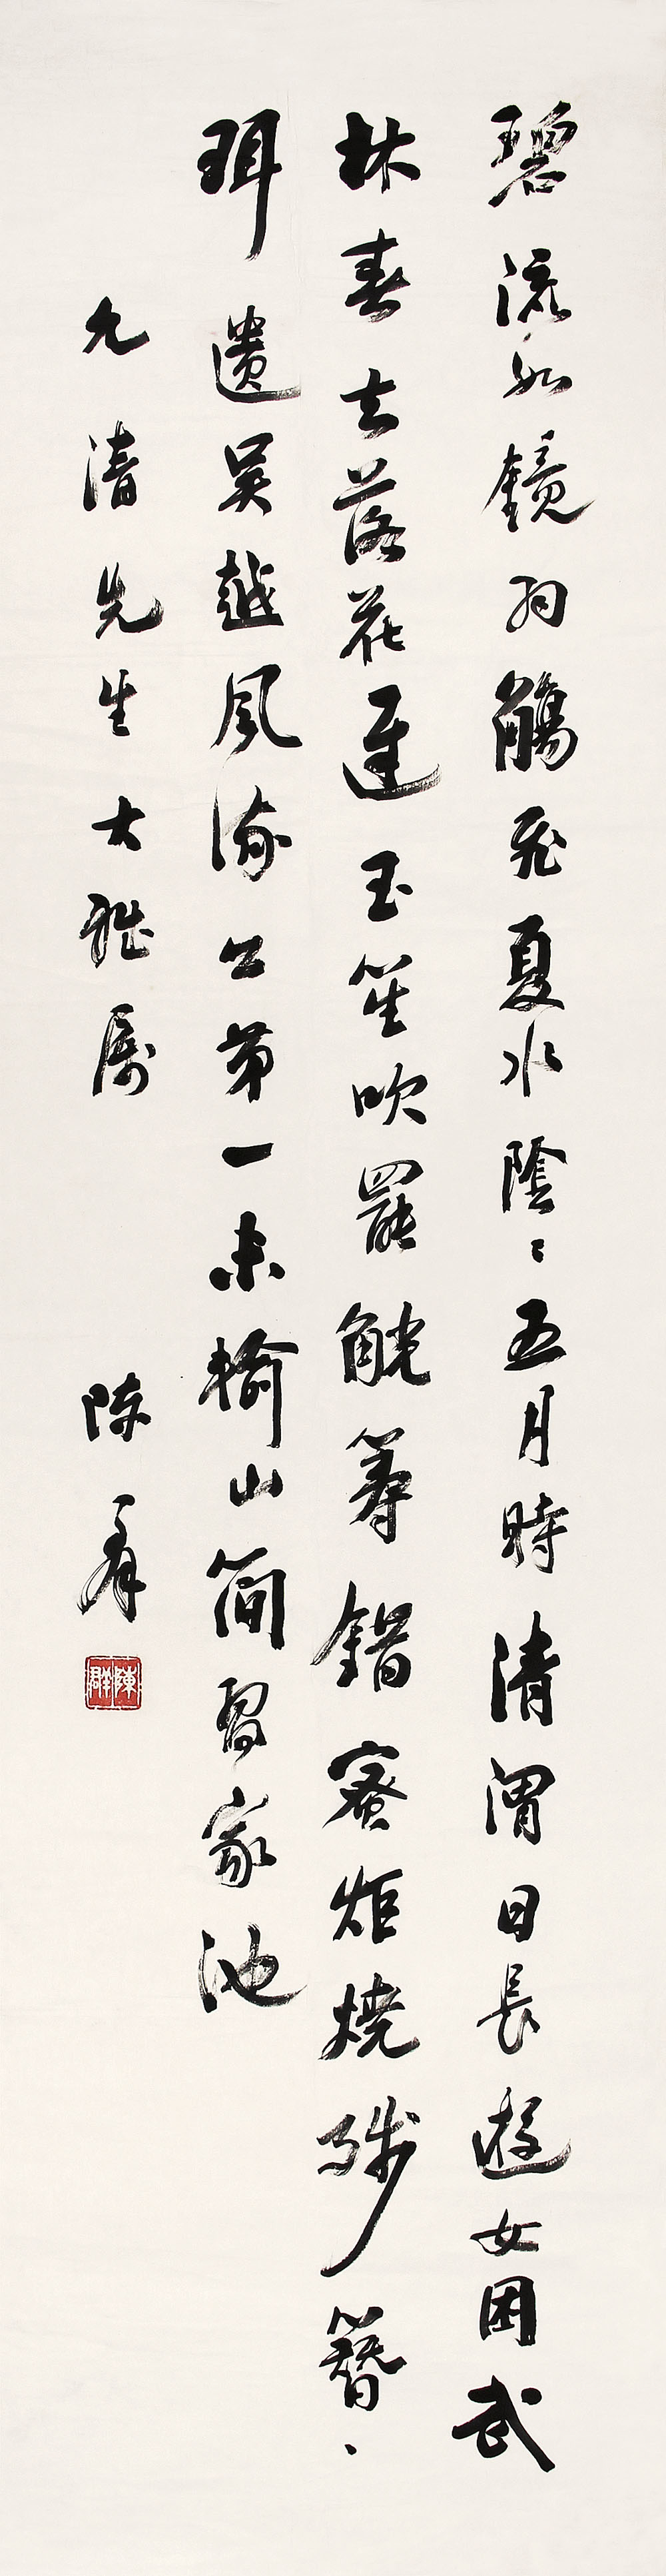 碧流如鏡羽觴飛夏水陰〻五月時清渭日長遊女困武
林春去落花遲玉笙吹罷觥籌錯蜜炬燒殘簪
珥遺吳越風流公第一未輸山簡習家池
允清先生大雅屬 陳羣
陳群